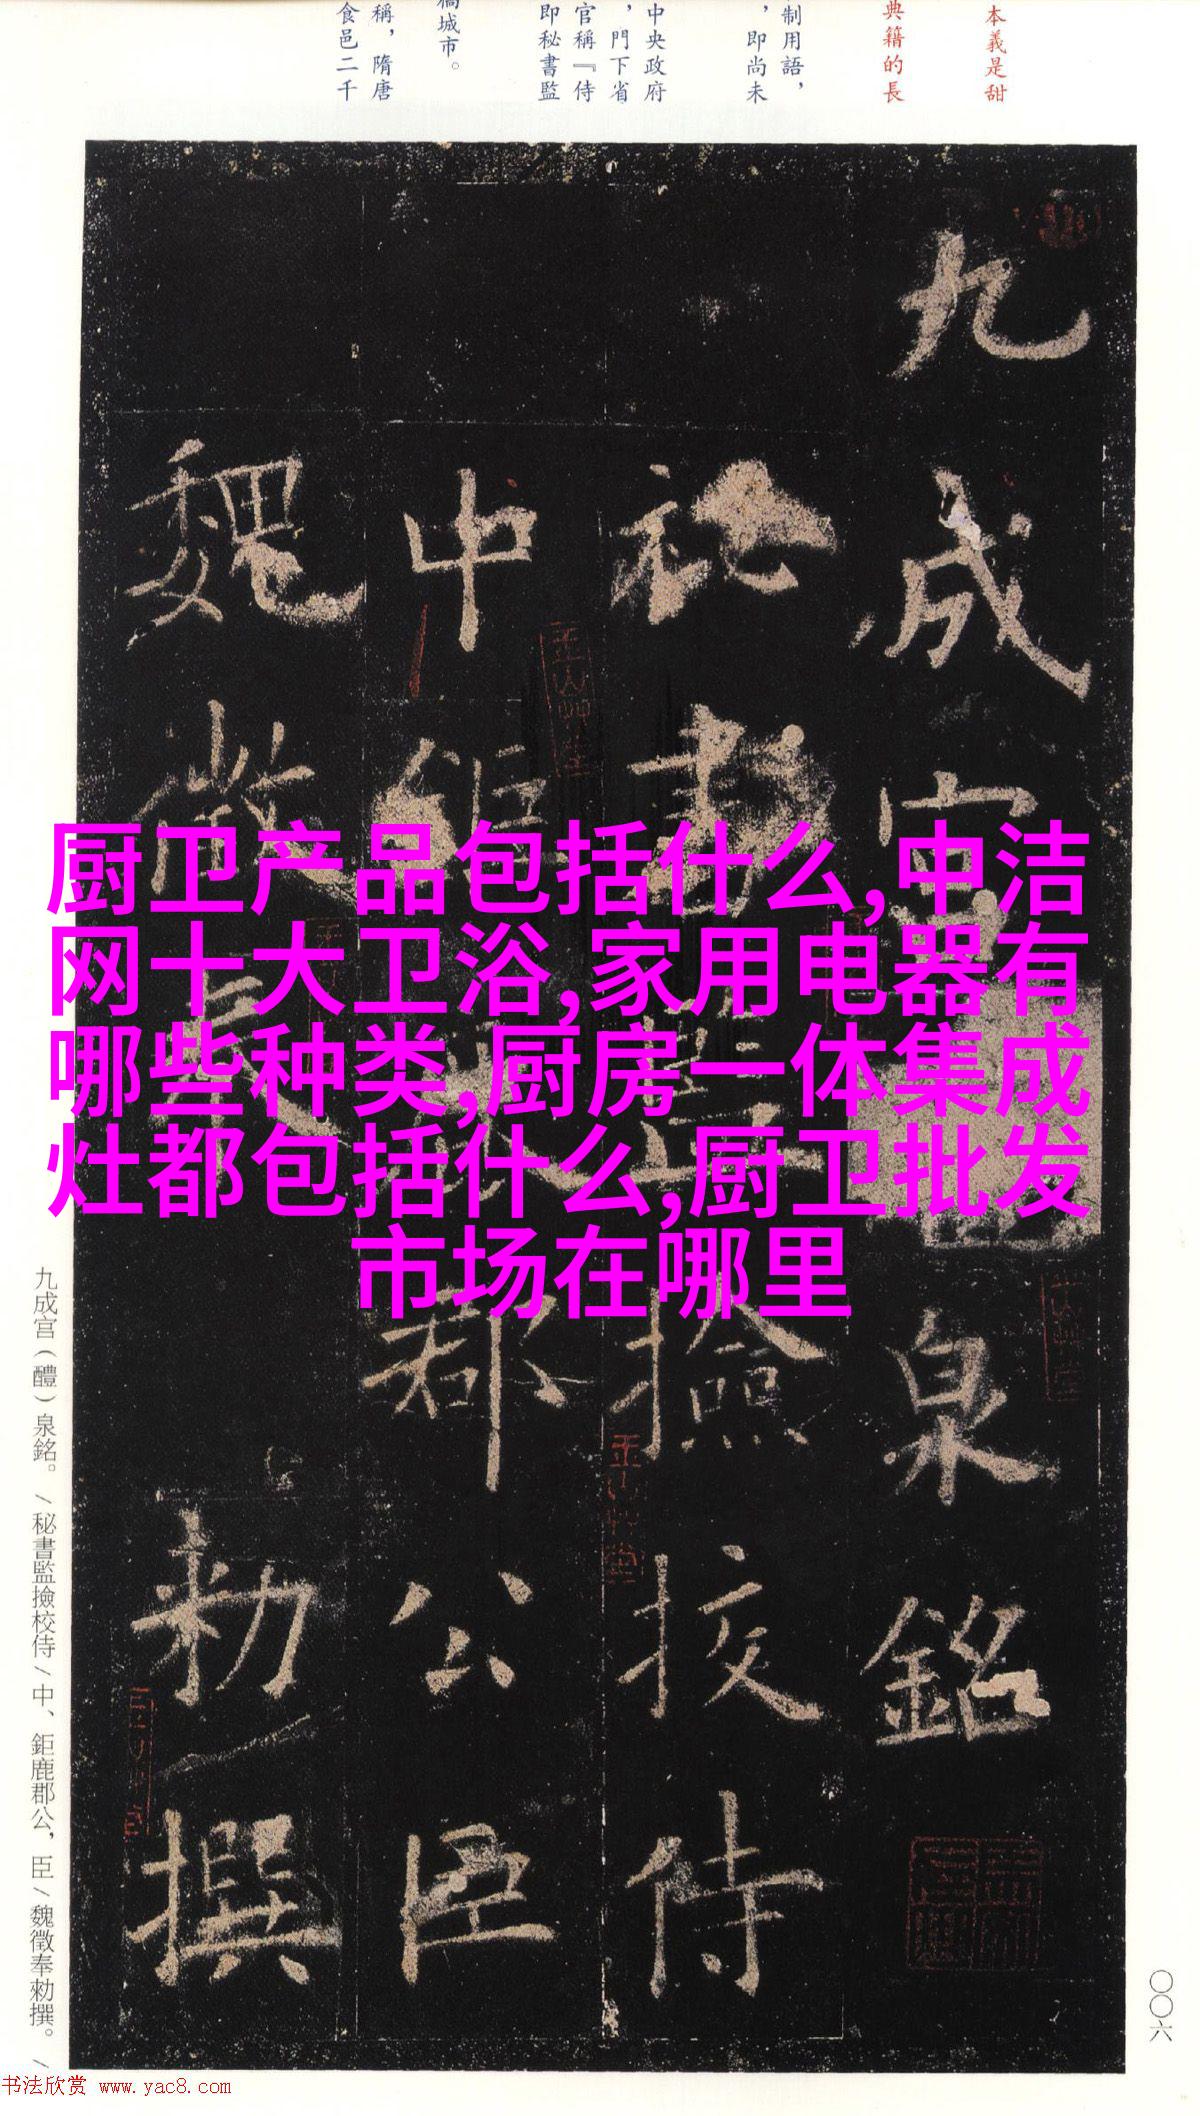 本義是甜
典籍的長
制用語，
，即尚未
中央政府
，門下省
官稱『侍
即秘書監
城市。
稱，隋唐
食邑二千
九成宮泉銘
祕書監撿挍侍
中鉅鹿郡公臣
魏徵奉勑撰
厨卫产品包括什么,中洁
网十大卫浴,家用电器有
哪些种类,厨房一体集成
灶都包括什么,厨卫批发
市场在哪里
九成宮（醴）泉銘。/秘書監撿校侍/中、鉅鹿郡公，臣/魏徵奉勑撰。/
〇〇六
书法欣赏 www.yac8.com